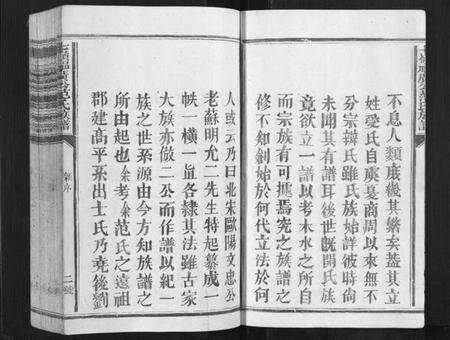 不息人類歲幾其繁矣蓋其立
姓受氏自虞夏商周以來無不
分宗辯氏雖氏族始詳彼時尚
未聞其有譜耳後世既開氏族
竟欲立一譜以考木水之所自
而宗族有可據焉究之族譜之
修不知創始於何代立法於何
人或云乃曰北宋歐陽文忠公
老蘇明允二先生特起纂成一
帙一橫一直各隸其法雖古家
大族亦倣二公而作譜以紀一
族之世系源由今方知族譜之
所由起也余考余范氏之遠祖
郡建高平系出士氏乃堯後劉